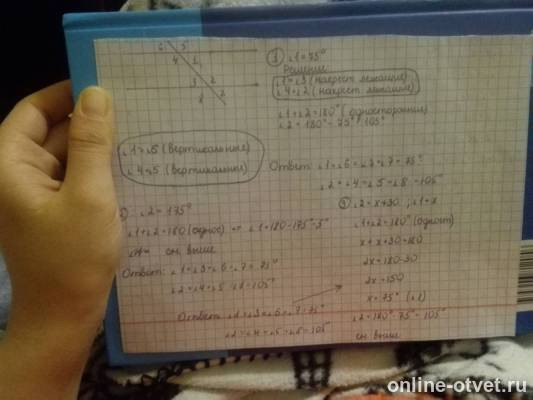 6 5
4 1
3 2
8 7
① ∠1=75°
Решение
∠1=∠3 (накрест лежащие)
∠4=∠2 (накрест лежащие)
∠1+∠2=180° (односторонние)
∠2=180°-75°=105°
∠1=∠6 (вертикальные)
∠4=∠5 (вертикальные)
Ответ: ∠1=∠6=∠3=∠7=75°
∠2=∠4=∠5=∠8=105°
∠2=175°
∠1+∠2=180 (однос) ∠1=180-175=5°
см. выше
Ответ: ∠1=∠3=∠6=∠7=75°
∠2=∠4=∠5=∠8=105°
Ответ: ∠1=∠3=∠6=∠7=75°
∠2=∠4=∠5=∠8=105°
③ ∠2=x+30; ∠1=x
∠1+∠2=180° (одност)
x+x+30=180
2x=180-30
2x=150
x=75° (∠1)
∠2=180°-75°=105°
см. выше
online-otvet.ru